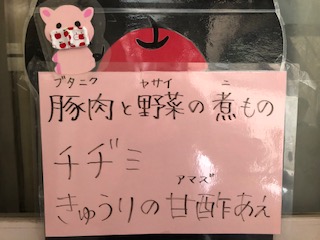 ブタニク ヤサイ ニ
豚肉と野菜の煮もの
チヂミ
アマズ
きゅうりの甘酢あえ